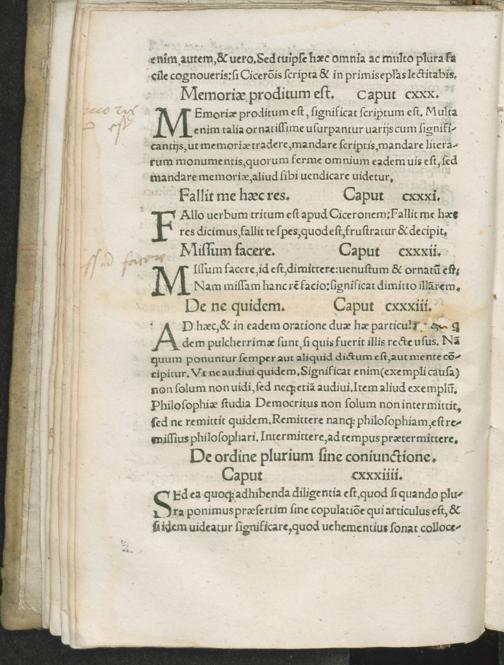 enim, autem, & uero, Sed tuipse hæc omnia ac multo plura fa
cile cognoueris: si Cicerõis scripta & in primis ep̃las lectitabis.
Memoriæ proditum est. Caput cxxx.
MEmoriæ proditum est, significat scriptum est. Multa
enim talia ornatissime usurpantur uarijs cum signifi-
cantijs, ut memoriæ tradere, mandare scriptis, mandare litera-
rum monumentis, quorum ferme omnium eadem uis est, sed
mandare memoriæ, aliud sibi uendicare uidetur.
Fallit me hæc res. Caput cxxxi.
FAllo uerbum tritum est apud Ciceronem: Fallit me hæc
res dicimus, fallit te spes, quod est, frustratur & decipit.
Missum facere. Caput cxxxii.
MIssum facere, id est, dimittere: uenustum & ornatũ est:
Nam missam hanc rẽ facio: significat dimitto illã rem.
De ne quidem. Caput cxxxiii.
AD hæc, & in eadem oratione duæ hæ particulæ
dem pulcherrimæ sunt, si quis fuerit illis recte usus. Nã
quum ponuntur semper aut aliquid dictum est, aut mente cõ-
cipitur. Vt ne audiui quidem, Significat enim (exempli causa)
non solum non uidi, sed neq; etiã audiui. Item aliud exemplũ,
Philosophiæ studia Democritus non solum non intermittit,
sed ne remittit quidem, Remittere nanq; philosophiam, est re-
missius philosophari. Intermittere, ad tempus prætermittere.
De ordine plurium sine coniunctione.
Caput cxxxiiii.
SEd ea quoq; adhibenda diligentia est, quod si quando plu-
ra ponimus præsertim sine copulatiõe qui articulus est, &
si idem uideatur significare, quod uehementius sonat colloce-